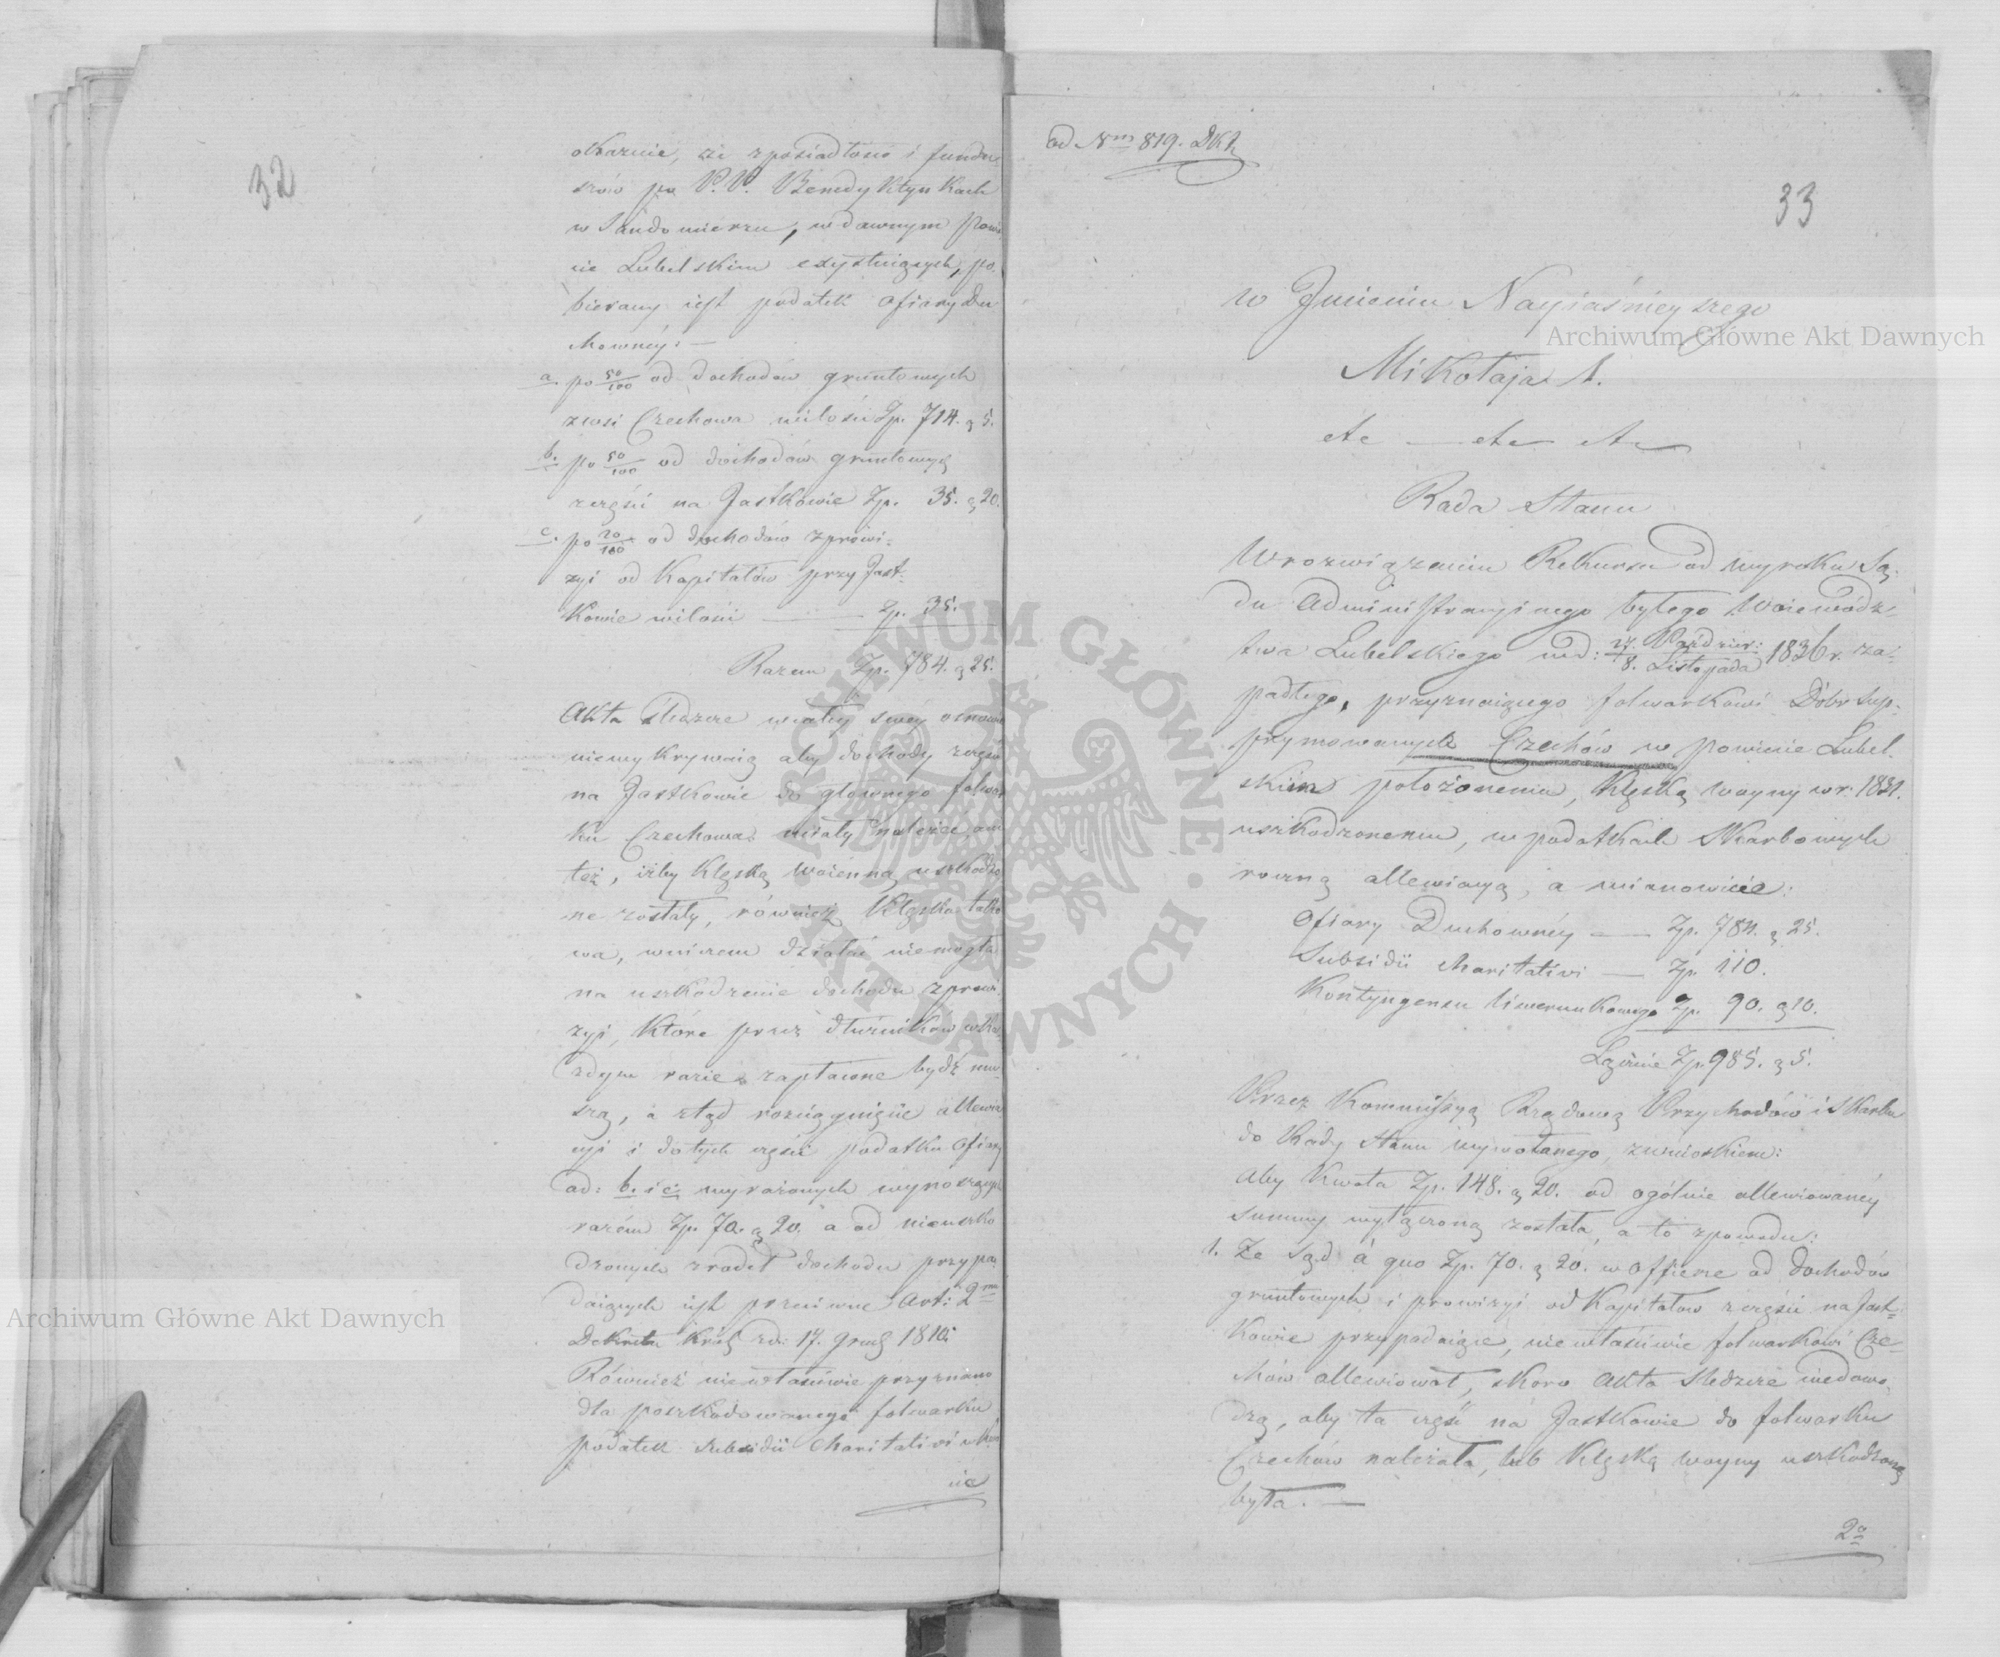 32
okazuie, że z posiadłości i fundu-
szów po P.P. Benedyktynkach
w Sandomierzu, w dawnym Powie
cie Lubelskim exystuiących, po-
bierany iest podatek Ofiary Du
chowney: —
a. po 50/100 od dochodów gruntowych
z wsi Czechowa w ilości Zp. 714. g 5.
b. po 50/100 od dochodów gruntowych
z części na Jastkowie Zp. 35. g 20.
c. po 20/100 od dochodów z prowi-
zyi od Kapitałów przy Jast-
kowie w ilości — Zp. 35.
Razem Zp. 784. g 25.
Akta śledcze w całey swey osnowie
nie wykrywaią aby dochody z części
na Jastkowie do głownego folwar
ku Czechowa miały należeć, ani
też, iżby klęską woienną uszkodzo
ne zostały, również klęska tako
wa, w niczem działać nie mogła
na uszkodzenie dochodu z prowi
zyi, które przez dłużników w ka
żdym razie zapłacone bydź mu-
szą, a ztąd rozciągnięcie allewia
cyi i do tych części podatku Ofiary
ad: b. i c. wyrażonych wynoszących
razem Zp. 70. g 20. a od nieuszko
dzonych zrodeł dochodu przypa
daiących iest przeciwne Art: 2m
Dekretu Król. z d: 17. Grud. 1810.
Również niewłaściwie przyznano
dla poszkodowanego folwarku
podatek Subsidii Charitativi w kwo
cie
od Nm 819. DKh
33
w Jmieniu Nayiaśnieyszego
Mikołaja I.
etc — etc etc
Rada Stanu
W rozwiązaniu Rekursu od wyroku Są-
du Administracyinego byłego Woiewódz-
twa Lubelskiego w d: 27. Paździer: / 8. Listopada 1836 r. za-
padłego, przyznaiącego folwarkowi Dóbr Sup-
prymowanych Czechów w powiecie Lubel
skim położonemu, klęską woyny w r. 1831.
uszkodzonemu, w podatkach Skarbowych
roczną allewiacyą, a mianowicie:
Ofiary Duchowney — Zp. 784. g 25.
Subsidii charitativi — Zp. 110.
Kontyngensu liwerunkowego Zp. 90. g 10.
Łącznie Zp. 985. g 5.
Przez Kommissyą Rządową Przychodów i Skarbu
do Rady Stanu wywołanego, z wnioskiem:
Aby Kwota Zp. 148. g 20. od ogólnie allewiowaney
summy wyłączoną została, a to z powodu:
1. Że Sąd á quo Zp. 70. g 20. w Ofierze od dochodów
gruntowych i prowizyi od Kapitałów z części na Jast-
kowie przypadaiące, niewłaściwie folwarkowi Cze-
chów allewiował, skoro Akta Śledcze niedowo-
dzą, aby ta część na Jastkowie do folwarku
Czechów należała, lub klęską woyny uszkodzoną
była. —
2o
Archiwum Główne Akt Dawnych
Archiwum Główne Akt Dawnych
ARCHIWUM GŁÓWNE AKT DAWNYCH